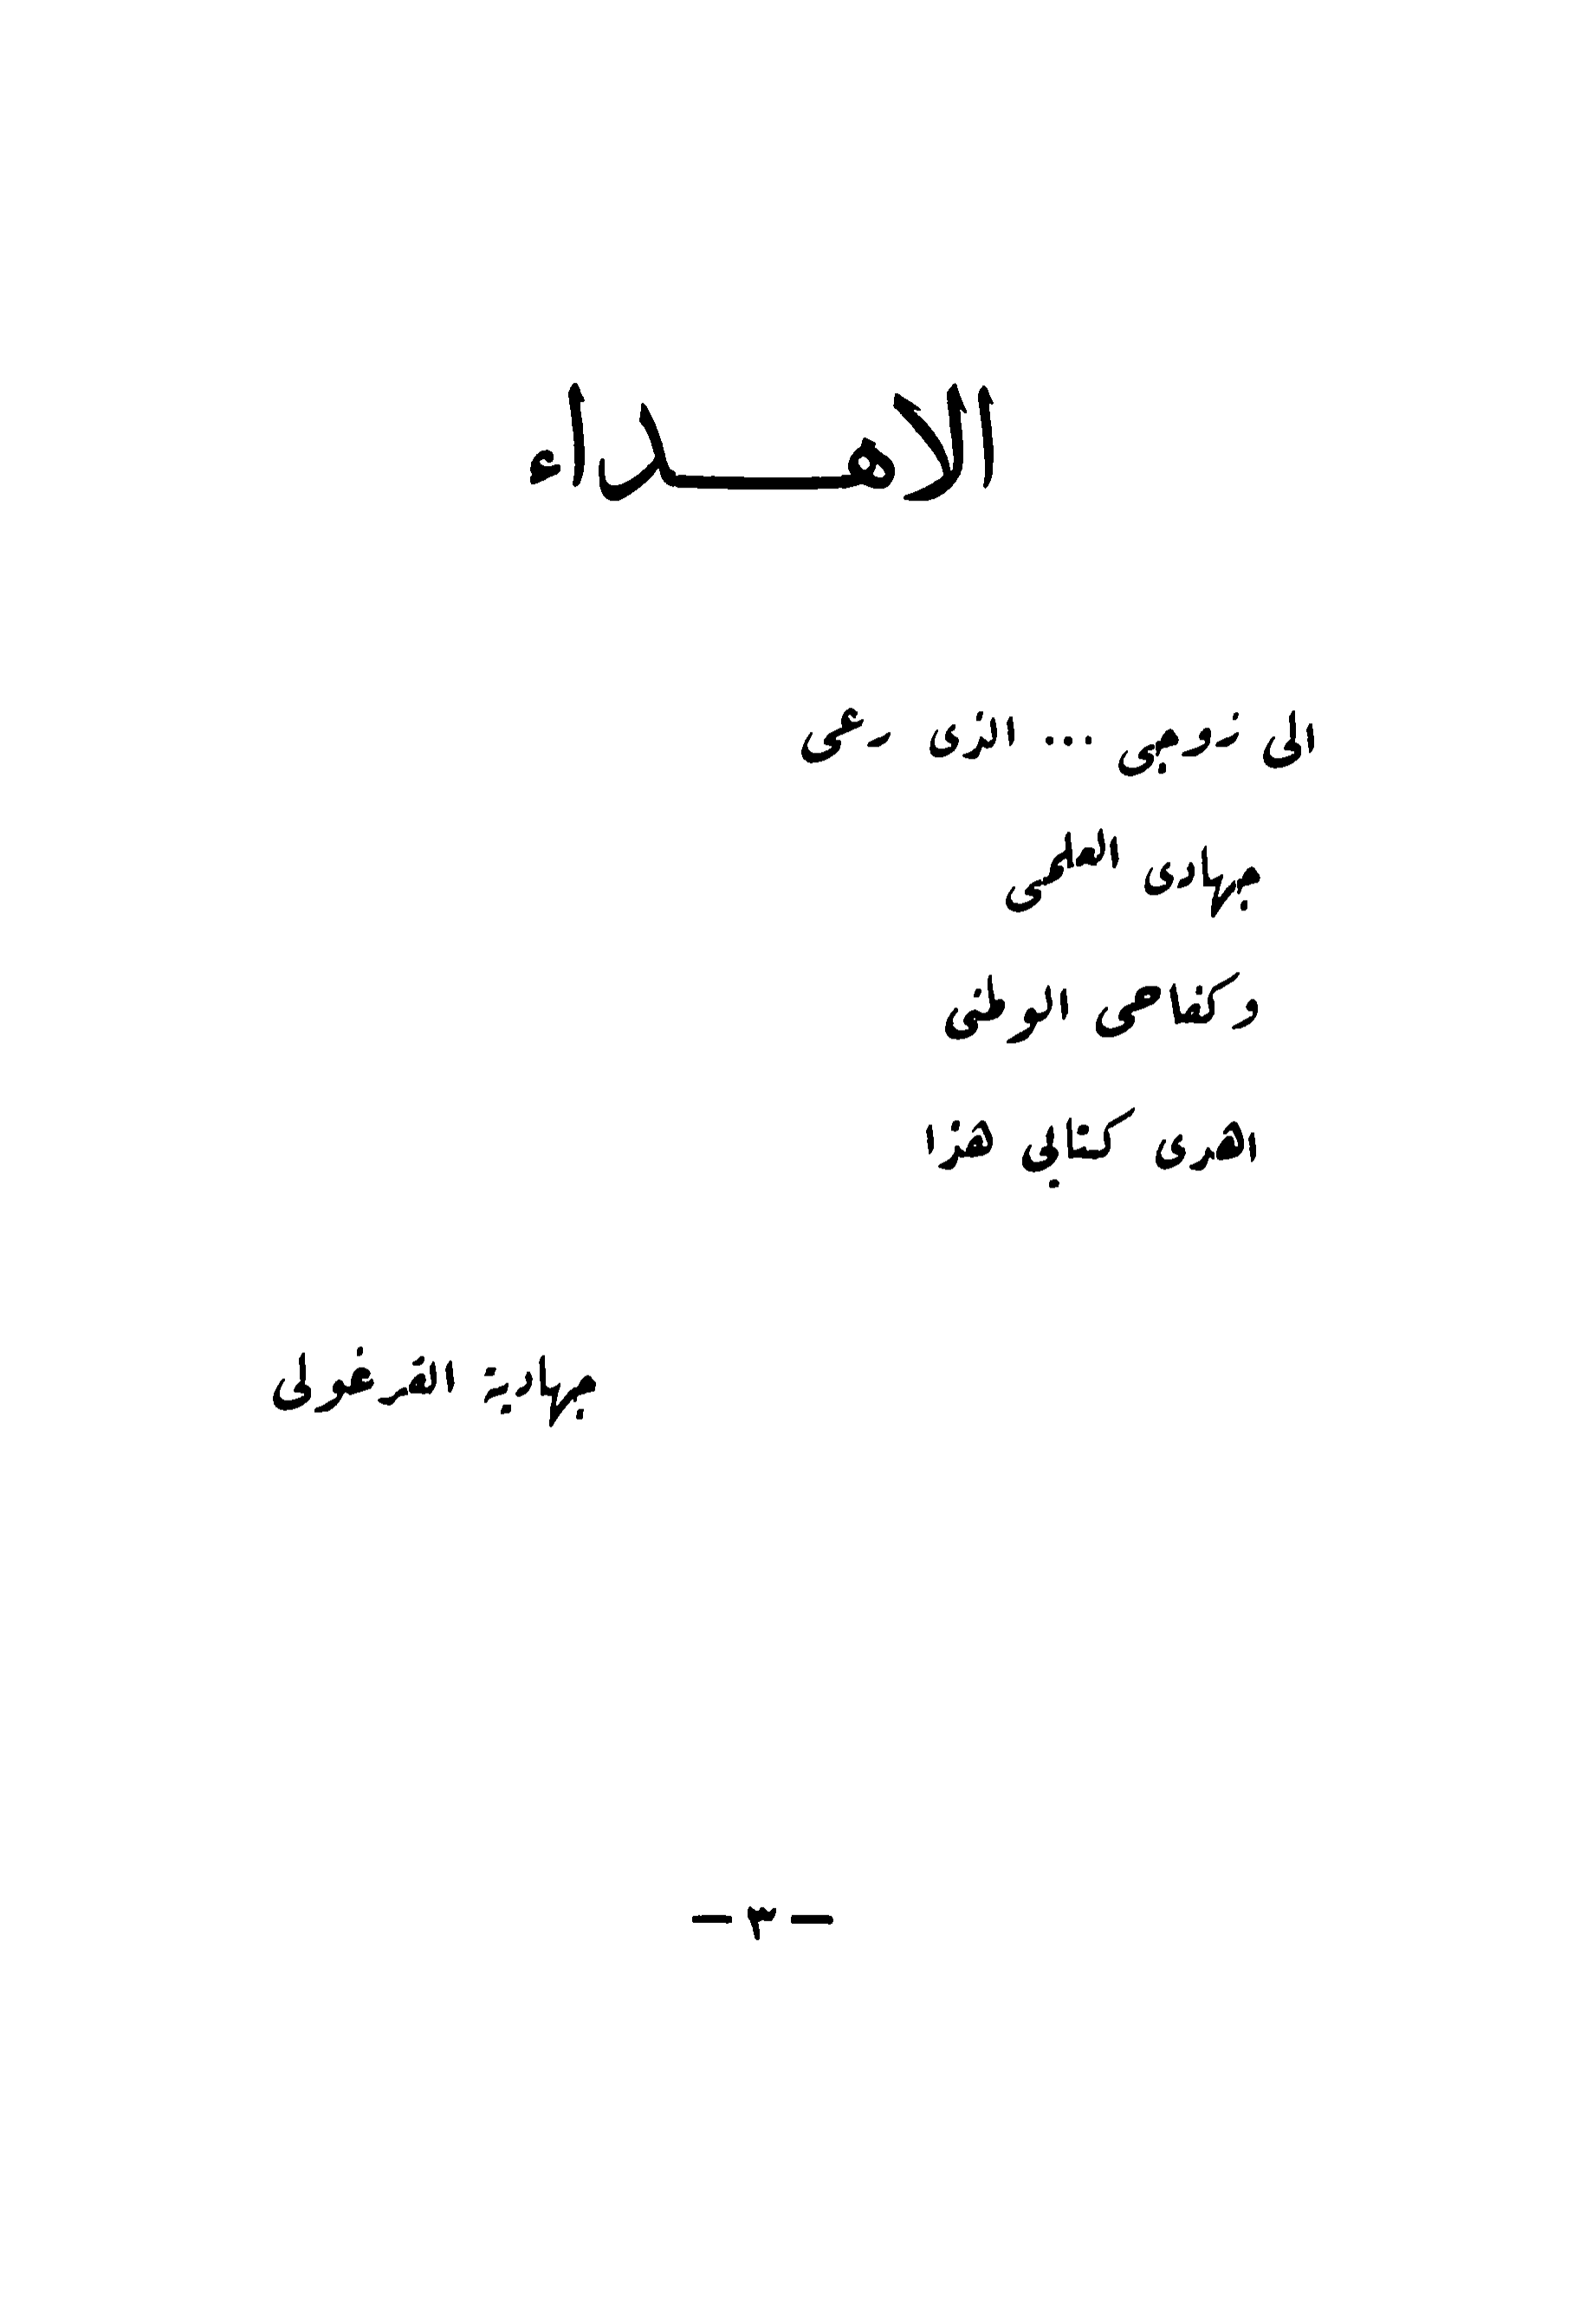 الاهـــداء
الى زوجي ... الذى رعى
جهادى العلمى
وكفاحى الوطنى
اهدى كتابي هذا
جهادية القرغولى
— ٣ —